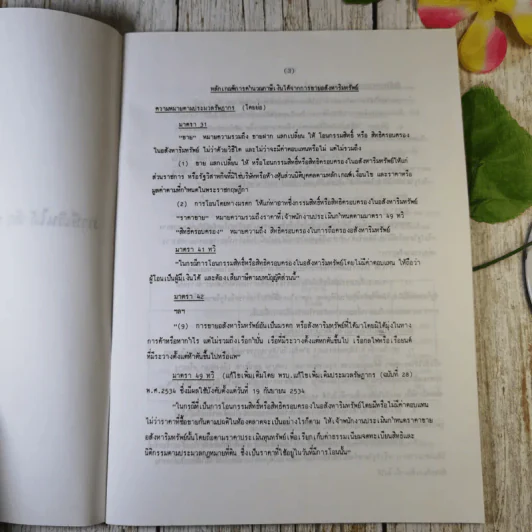 (8)
หลักเกณฑ์การคำนวณภาษีเงินได้จากการขายอสังหาริมทรัพย์
ความหมายตามประมวลรัษฎากร (โดยย่อ)
มาตรา 31
"ขาย" หมายความรวมถึง ขายฝาก แลกเปลี่ยน ให้ โอนกรรมสิทธิ์ หรือ สิทธิครอบครอง
ในอสังหาริมทรัพย์ ไม่ว่าด้วยวิธีใด และไม่ว่าจะมีค่าตอบแทนหรือไม่ แต่ไม่รวมถึง
(1) ขาย แลกเปลี่ยน ให้ หรือโอนกรรมสิทธิ์หรือสิทธิครอบครองในอสังหาริมทรัพย์ให้แก่
ส่วนราชการ หรือรัฐวิสาหกิจที่มิใช่บริษัทหรือห้างหุ้นส่วนนิติบุคคลตามหลักเกณฑ์เงื่อนไข และราคาหรือ
มูลค่าตามที่กำหนดในพระราชกฤษฎีกา
(2) การโอนโดยทางมรดก ให้แก่ทายาทซึ่งกรรมสิทธิ์หรือสิทธิครอบครองในอสังหาริมทรัพย์
"ราคาขาย" หมายความรวมถึงราคาที่เจ้าพนักงานประเมินกำหนดตามมาตรา 49 ทวิ
"สิทธิครอบครอง" หมายความถึง สิทธิครอบครองในการถือครองอสังหาริมทรัพย์
มาตรา 41 ทวิ
"ในกรณีการโอนกรรมสิทธิ์หรือสิทธิครอบครองในอสังหาริมทรัพย์โดยไม่มีค่าตอบแทน ให้ถือว่า
ผู้โอนเป็นผู้มีเงินได้ และต้องเสียภาษีตามบทบัญญัติส่วนนี้"
มาตรา 42
ฯลฯ
"(9) การขายอสังหาริมทรัพย์อันเป็นมรดก หรืออสังหาริมทรัพย์ที่ได้มาโดยมิได้มุ่งในทาง
การค้าหรือหากำไร แต่ไม่รวมถึงเรือกำปั่น เรือที่มีระวางตั้งแต่หกตันขึ้นไป เรือกลไฟหรือเรือยนต์
ที่มีระวางตั้งแต่ห้าตันขึ้นไปหรือแพ"
มาตรา 49 ทวิ (แก้ไขเพิ่มเติมโดย พรบ.แก้ไขเพิ่มเติมประมวลรัษฎากร (ฉบับที่ 28)
พ.ศ.2534 ซึ่งมีผลใช้บังคับตั้งแต่วันที่ 19 กันยายน 2534
"ในกรณีที่เป็นการโอนกรรมสิทธิ์หรือสิทธิครอบครองในอสังหาริมทรัพย์โดยมีหรือไม่มีค่าตอบแทน
ไม่ว่าราคาที่ซื้อขายกันตามปกติในท้องตลาดจะเป็นอย่างไรก็ตาม ให้เจ้าพนักงานประเมินกำหนดราคาขาย
อสังหาริมทรัพย์นั้นโดยถือตามราคาประเมินทุนทรัพย์เพื่อเรียกเก็บค่าธรรมเนียมจดทะเบียนสิทธิและ
นิติกรรมตามประมวลกฎหมายที่ดิน ซึ่งเป็นราคาที่ใช้อยู่ในวันที่มีการโอนนั้น"